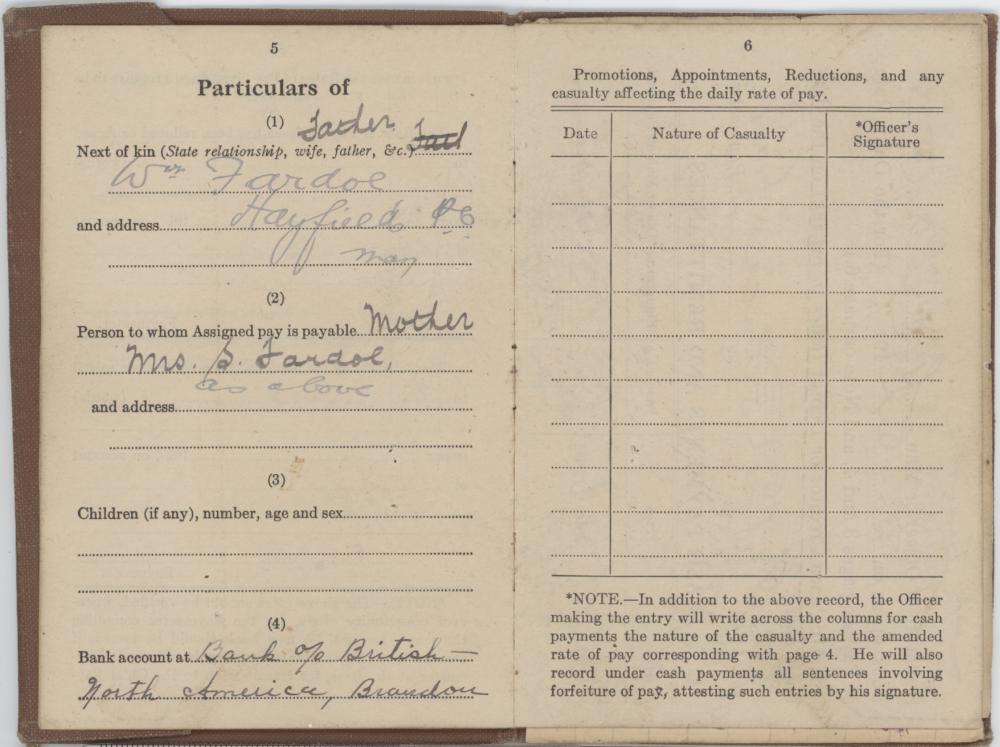 5
Particulars of
(1)
Father
Next of kin (State relationship, wife, father, &c.)
Wm Fardoe
and address Hayfield P.O
Man
(2)
Person to whom Assigned pay is payable Mother
Mrs. S. Fardoe,
as above
and address
(3)
Children (if any), number, age and sex
(4)
Bank account at Bank of British
North America, Brandon
6
Promotions, Appointments, Reductions, and any
casualty affecting the daily rate of pay.
Date Nature of Casualty *Officer's Signature
*NOTE.—In addition to the above record, the Officer
making the entry will write across the columns for cash
payments the nature of the casualty and the amended
rate of pay corresponding with page 4. He will also
record under cash payments all sentences involving
forfeiture of pay, attesting such entries by his signature.